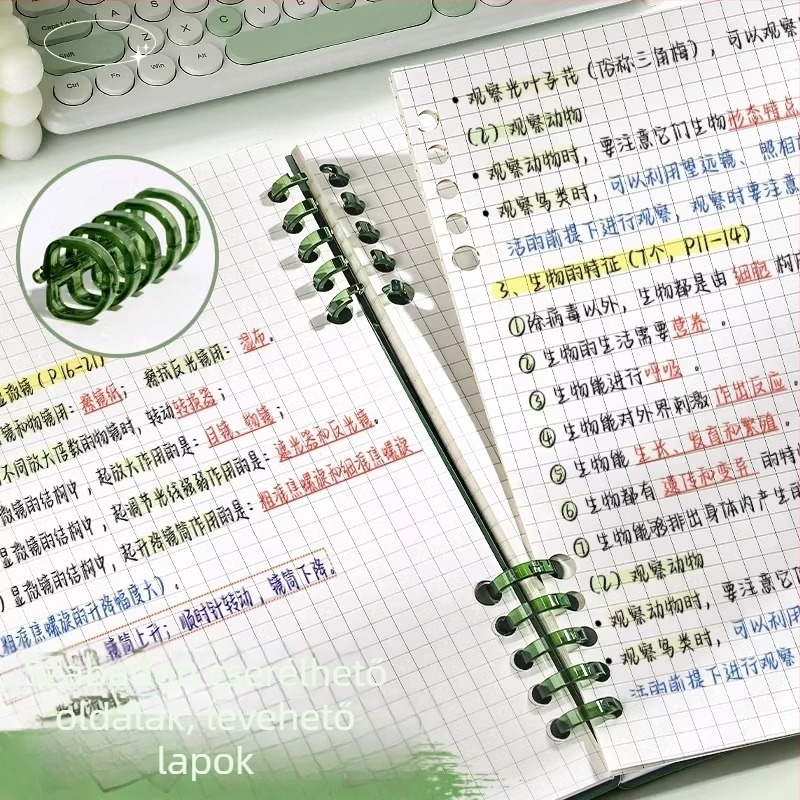 Caps Lock
Shift
Z
X
C
V
B
N
M
Ctrl
Fn
Win
Alt
显微镜(P16-21)
镜和物镜用：擦镜纸； 擦拭反光镜用：湿布。
不同放大倍数的物镜时，转动转换器；
微镜的结构中，起放大作用的是：目镜、物镜；
显微镜的结构中，起调节光线强弱作用的是：遮光器和反光镜。
显微镜的结构中，起升降镜筒作用的是：粗准焦螺旋和细准焦螺旋
粗准焦螺旋的升降幅度大)。
镜筒上升；顺时针转动，镜筒下降。
• 观察光叶子花(俗称三角梅)，可以观察
(2) 观察动物
• 观察动物时，要注意它们生物形态特点
• 观察鸟类时，可以利用望远镜、照相
活的前提下进行观察，观察时要注意
3、生物的特征(7个，P11-14)
①除病毒以外，生物都是由细胞构
②生物的生活需要营养。
③生物能进行呼吸。
④生物能对外界刺激作出反应。
⑤生物能生长、发育和繁殖。
⑥生物都有遗传和变异的特
⑦生物能够排出身体内产生的
(2) 观察动物
• 观察动物时，要注意它
• 观察鸟类时，可以利用
活的前提下进行观察
Szabadon cserélhető
oldalak, levehető
lapok